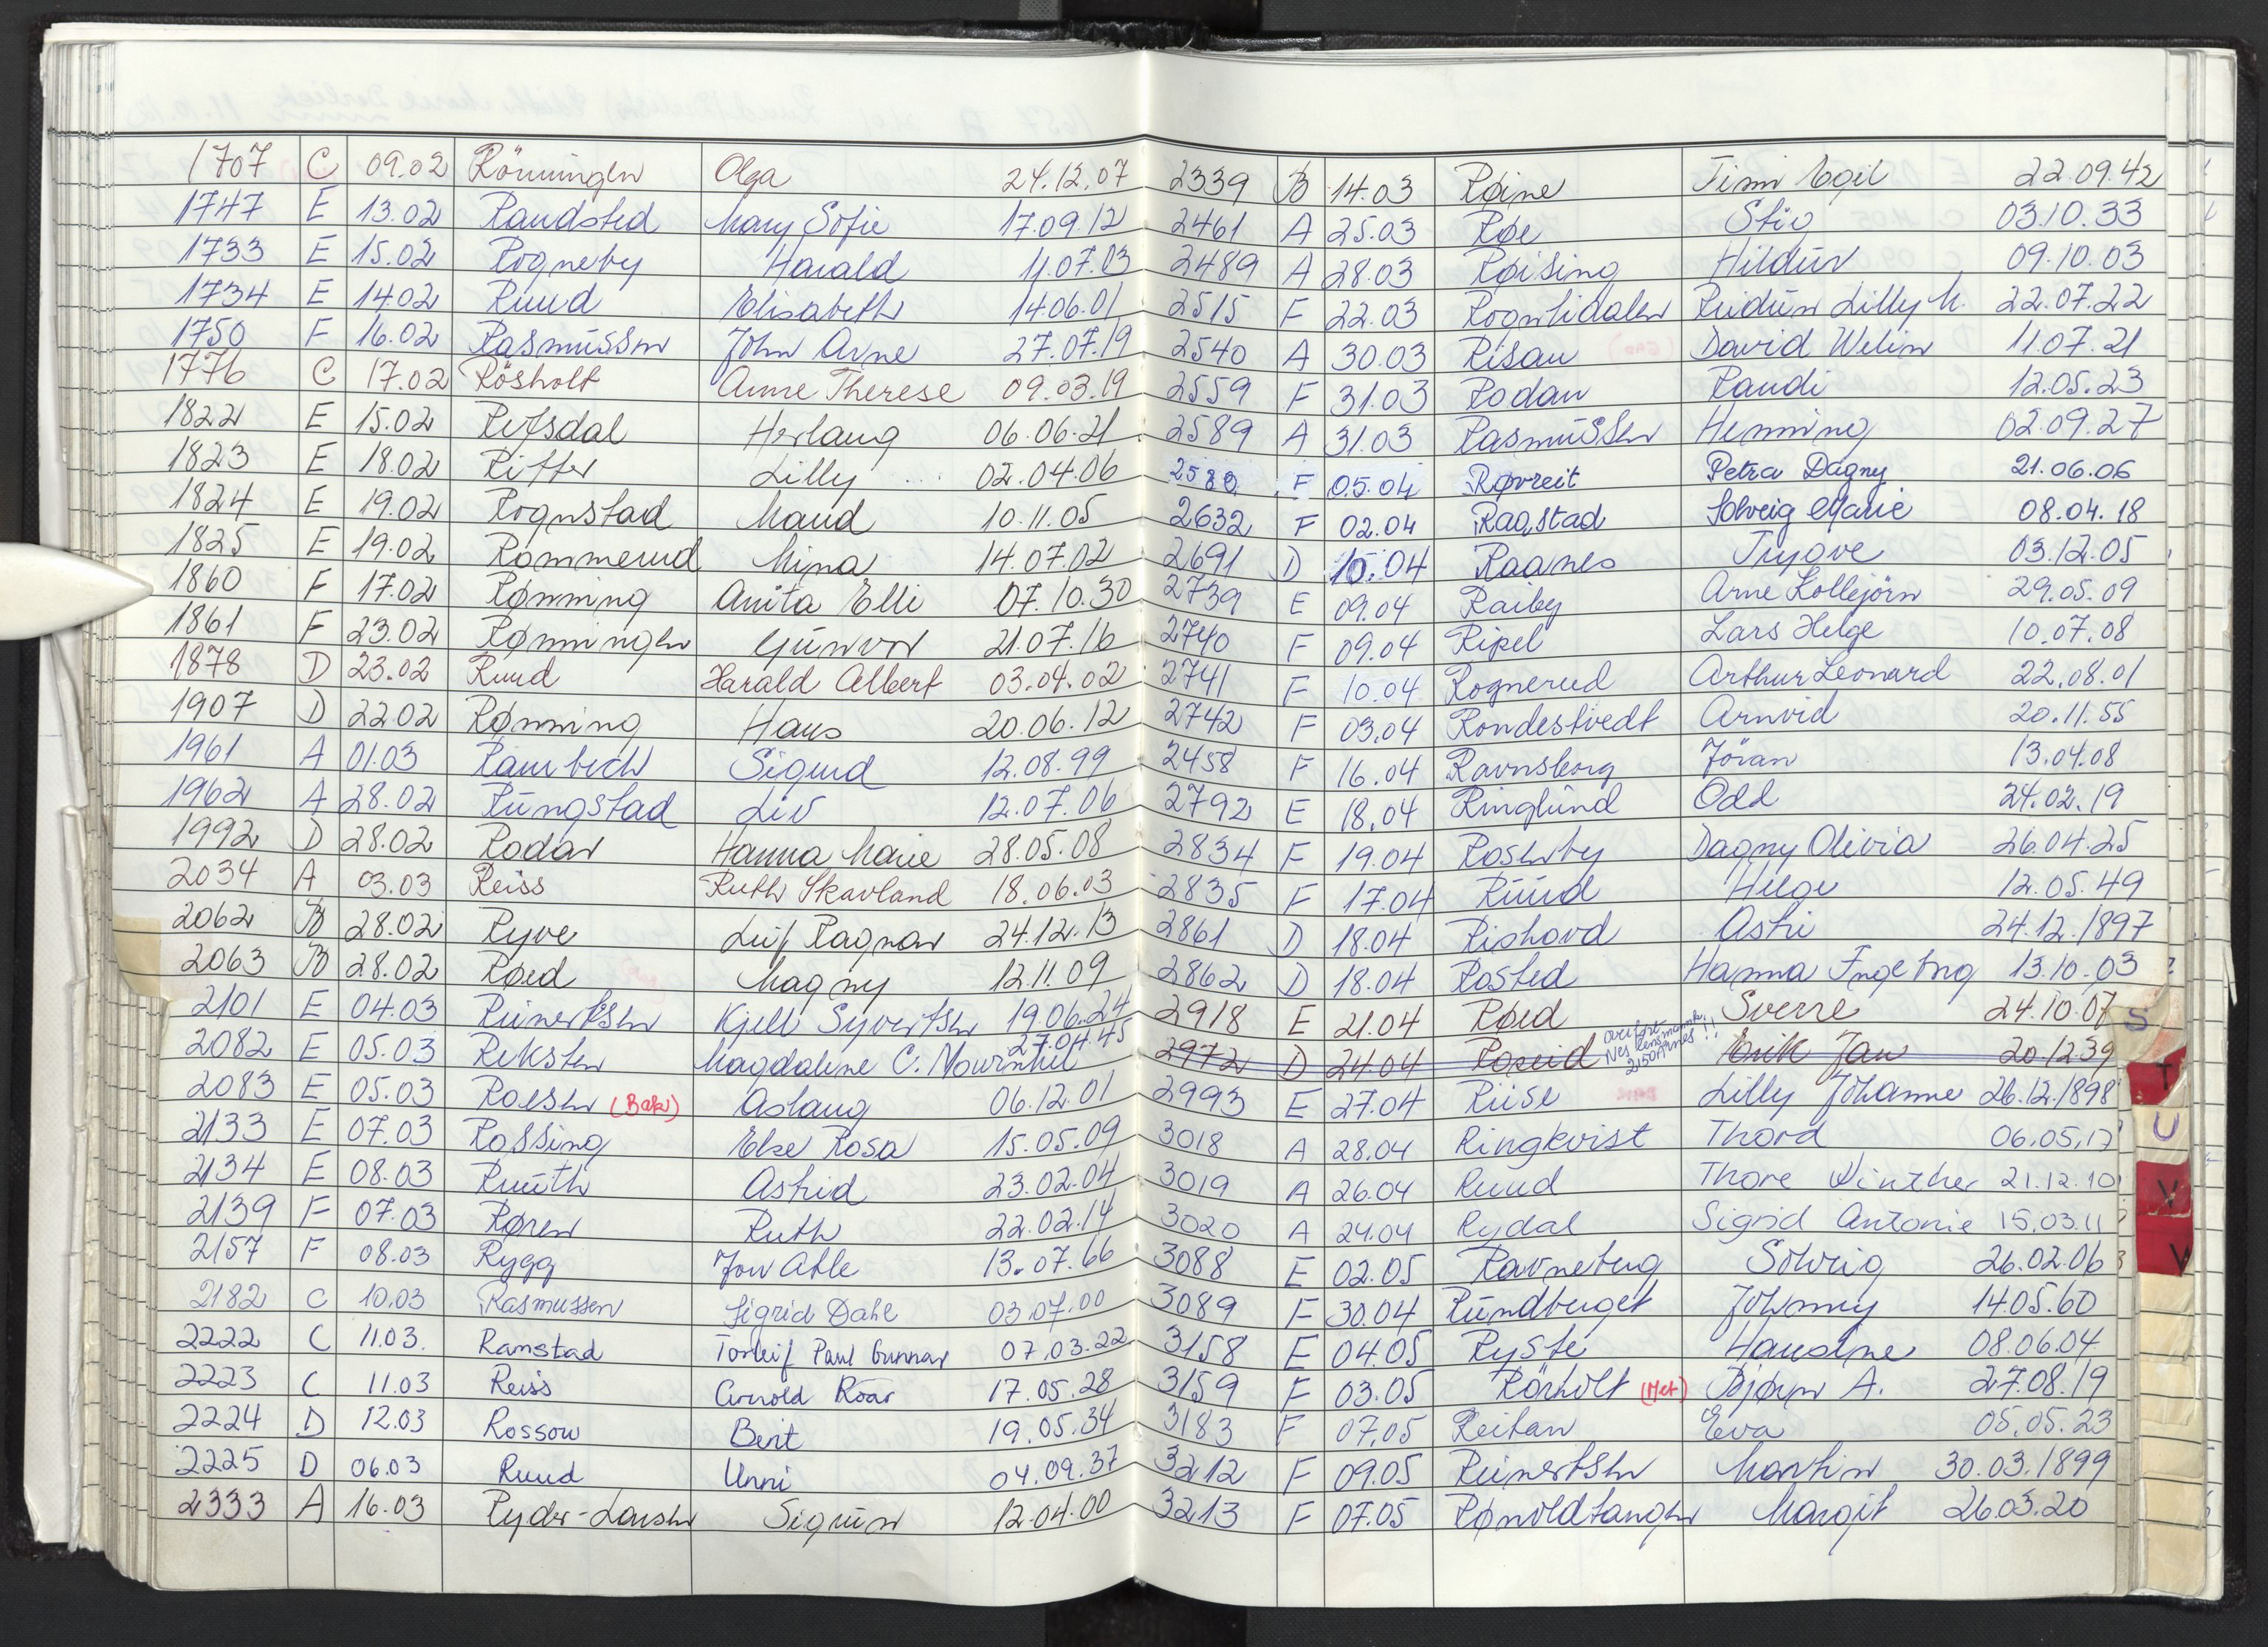 1707 C 09.02 Rönningen Olga 24.12.07
1747 E 13.02 Randsted Mary Sofie 17.09.12
1733 E 15.02 Rogneby Harald 11.07.03
1734 E 14.02 Ruud Elisabeth 14.06.01
1750 F 16.02 Rasmussen John Arne 27.07.19
1776 C 17.02 Rösholt Anne Therese 09.03.19
1822 E 15.02 Refsdal Herlaug 06.06.21
1823 E 18.02 Ritter Lilly 02.04.06
1824 E 19.02 Rognstad Maud 10.11.05
1825 E 19.02 Rommerud Mina 14.07.02
1860 F 17.02 Rønning Anita Elli 07.10.30
1861 F 23.02 Rønningen Gunvor 21.07.16
1878 D 23.02 Ruud Harald Albert 03.04.02
1907 D 22.02 Rønning Hans 20.06.12
1961 A 01.03 Rambech Sigurd 12.08.99
1962 A 28.02 Rungstad Liv 12.07.06
1992 D 28.02 Rodar Hanna Marie 28.05.08
2034 A 03.03 Reiss Ruth Skavland 18.06.03
2062 B 28.02 Ryve Leif Ragnar 24.12.13
2063 B 28.02 Røed Magny 12.11.09
2101 E 04.03 Reinertsen Kjell Syvertsen 19.06.24
2082 E 05.03 Reksten Magdalene C. 27.04.45
2083 E 05.03 Roesen (Bak) Aslaug 06.12.01
2133 E 07.03 Rossing Else Rosa 15.05.09
2134 E 08.03 Ruuth Astrid 23.02.04
2139 F 07.03 Røren Ruth 22.02.14
2157 F 08.03 Rygg Jon Atle 13.07.66
2182 C 10.03 Rasmussen Sigrid Dahl 03.07.00
2222 C 11.03. Ramstad Torleif Paul Gunnar 07.03.22
2223 C 11.03 Reiss Arnold Roar 17.05.28
2224 D 12.03 Rossow Berit 19.05.34
2225 D 06.03 Ruud Unni 04.09.37
2333 A 16.03 Ryder-Larsen Sigrun 12.04.00
2339 B 14.03 Røine Jimi Egil 22.09.42
2461 A 25.03 Røe Stig 03.10.33
2489 A 28.03 Røising Hildur 09.10.03
2515 F 22.03 Rognlidalen Reidun Lilly M. 22.07.22
2540 A 30.03 Risan David Welin 11.07.21
2559 F 31.03 Rodan Randi 12.05.23
2589 A 31.03 Rasmussen Henning 02.09.27
2580 F 05.04 Røvreit Petra Dagny 21.06.06
2632 F 02.04 Ragstad Solveig Marie 08.04.18
2691 D 10.04 Raanes Trygve 03.12.05
2739 E 09.04 Raiby Arne Kollbjörn 29.05.09
2740 F 09.04 Ripel Lars Helge 10.07.08
2741 F 10.04 Rognerud Arthur Leonard 22.08.01
2742 F 03.04 Rondestvedt Arnvid 20.11.55
2458 F 16.04 Ravnsborg Jöran 13.04.08
2792 E 18.04 Ringlund Odd 24.02.19
2834 F 19.04 Rosenby Dagny Olivia 26.04.25
2835 F 17.04 Ruud Helge 12.05.49
2861 D 18.04 Rishovd Astri 24.12.1897
2862 D 18.04 Rosted Hanna Ingeborg 13.10.03
2918 E 21.04 Røed Sverre 24.10.07
2972 D 24.04 Roseid overført Nes lensmannk. 2150 Årnes!! Erik Jan 20.12.39
2993 E 27.04 Riise Lilly Johanne 26.12.1898
3018 A 28.04 Ringkvist Thord 06.05.17
3019 A 26.04 Ruud Thore Winther 21.12.10
3020 A 24.04 Rydal Sigrid Antonie 15.03.11
3088 E 02.05 Ravneberg Solveig 26.02.06
3089 F 30.04 Rundberget Johnny 14.05.60
3158 E 04.05 Ryste Hansine 08.06.04
3159 F 03.05 Rörholt (Met) Bjørn A. 27.08.19
3183 F 07.05 Reitan Eva 05.05.23
3212 F 09.05 Reinertsen Martin 30.03.1899
3213 F 07.05 Rønoldtangen Margit 26.03.20
S
T
U
V